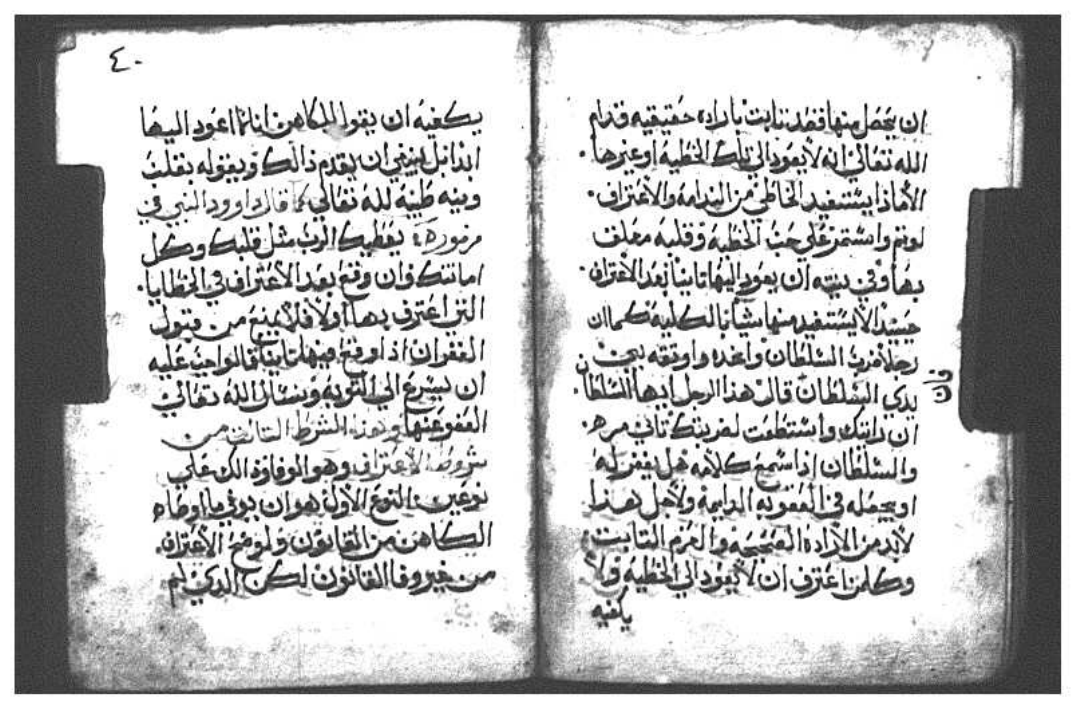 ان يحصل منها قصد ثابت بارادة حقيقيه قدام
الله تعالى انه لا يعود الي تلك الخطيه او غيرها.
الاماذا يستفيد الخاطي من الندامه والاعتراف.
لو ندم واستمر علي حب الخطيه وقلبه معلق
بها وفي نيته ان يعود اليها تانيا بعد الاعتراف.
حينيدا لا يستفيد منها شيا بالكليه كما ان
رجلا ضرب السلطان واخده واوقفه بين
يدي السلطان قال هذا الرجل ايها السلطان
فان
ان رايتك واستطعت لضربتك تاني مره.
والسلطان اذا سمع كلامه هل يغفر له
او يجعله في العقوبه الدايمه ولاجل هذا
لابد من الاراده الصحيحه والعزم التابت
وكلمن اعترف ان لا يعود الي الخطيه ولا
يكفيه
٤٠
يكفيه ان يقول للكاهن انا ما اعود اليها
ابدا بل ينبغي ان يقدم ذالك ويقوله بقلب
ونيه طيبه لله تعالي كما قال داوود النبي في
مزموره يعطيك الرب مثل قلبك وكل
امانتك وان وقع بعد الاعتراف في الخطايا.
التي اعترف بها اولا فلا يمنع من قبول
الغفران اذا وقع فيها تانيا فالواجب عليه
ان يسرع الي التوبه ويسال الله تعالي
العفو عنها وهذا الشرط التالت من
شروط الاعتراف وهو الوفا وذالك علي
نوعين النوع الاول هو ان يوفي ما اوصاه
الكاهن من القانون ولو صح الاعتراف.
من غير وفا القانون لكن الدي لم